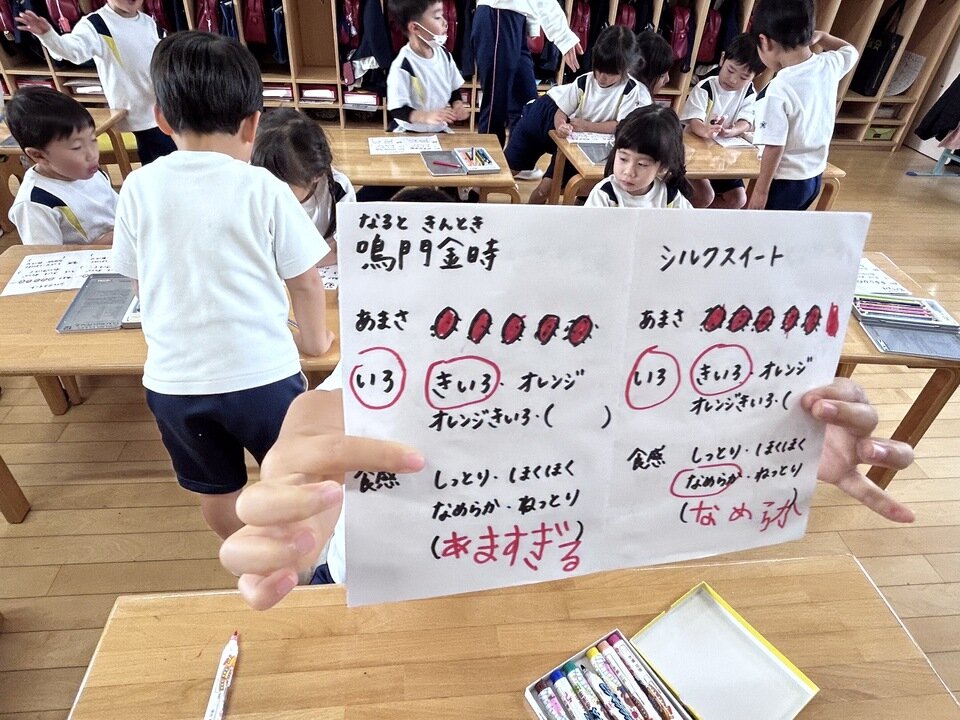 なると きんとき
鳴門金時
あまさ
いろ きいろ・オレンジ
オレンジきいろ・(　　)
食感 しっとり・ほくほく
なめらか・ねっとり
(あますぎる)
シルクスイート
あまさ
いろ きいろ・オレンジ
オレンジきいろ・(
食感 しっとり・ほくほく
なめらか・ねっとり
(なめらか)